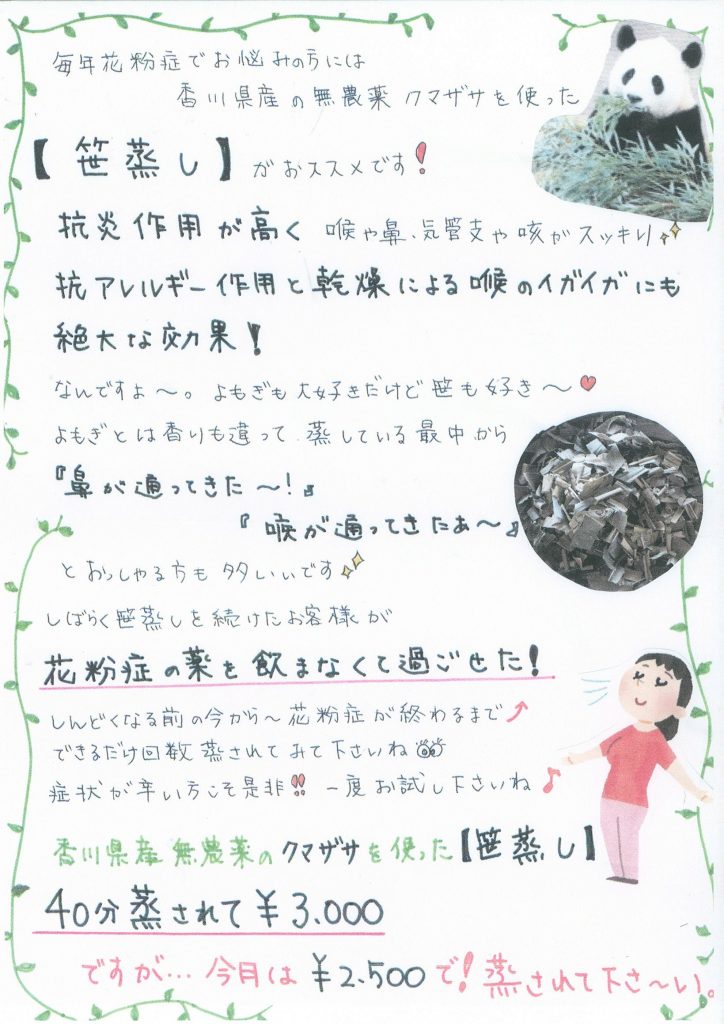 毎年花粉症でお悩みの方には
香川県産の無農薬クマザサを使った
【笹蒸し】がおススメです!
抗炎作用が高く 喉や鼻、気管支や咳がスッキリ✨
抗アレルギー作用と乾燥による喉のイガイガにも
絶大な効果!
なんですよ〜。よもぎも大好きだけど笹も好き〜♥
よもぎとは香りも違って 蒸している最中から
『鼻が通ってきた〜!』
『喉が通ってきたぁ〜』
とおっしゃる方も多いぃです✨
しばらく笹蒸しを続けたお客様が
花粉症の薬を飲まなくて過ごせた!
しんどくなる前の今から〜花粉症が終わるまで
できるだけ回数蒸されてみて下さいね
症状が辛い方こそ是非!! 一度お試し下さいね♪
香川県産無農薬のクマザサを使った【笹蒸し】
40分蒸されて¥3.000
ですが…今月は¥2.500で!蒸されて下さ〜い。